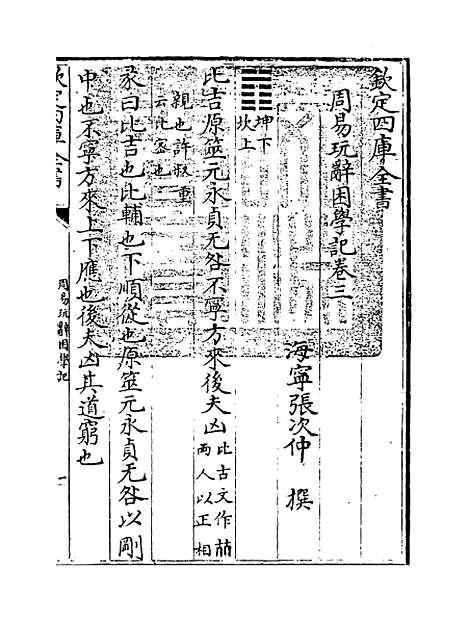 欽定四庫全書
周易玩辭困學記卷三
海寧張次仲 撰
坤下
坎上
比吉原筮元永貞无咎不寧方來後夫凶
比古文作𠈌
兩人以正相
親也許叔重
云比密也
彖曰比吉也比輔也下順從也原筮元永貞无咎以剛
中也不寧方來上下應也後夫凶其道窮也
欽定四庫全書
周易玩辭困學記
一